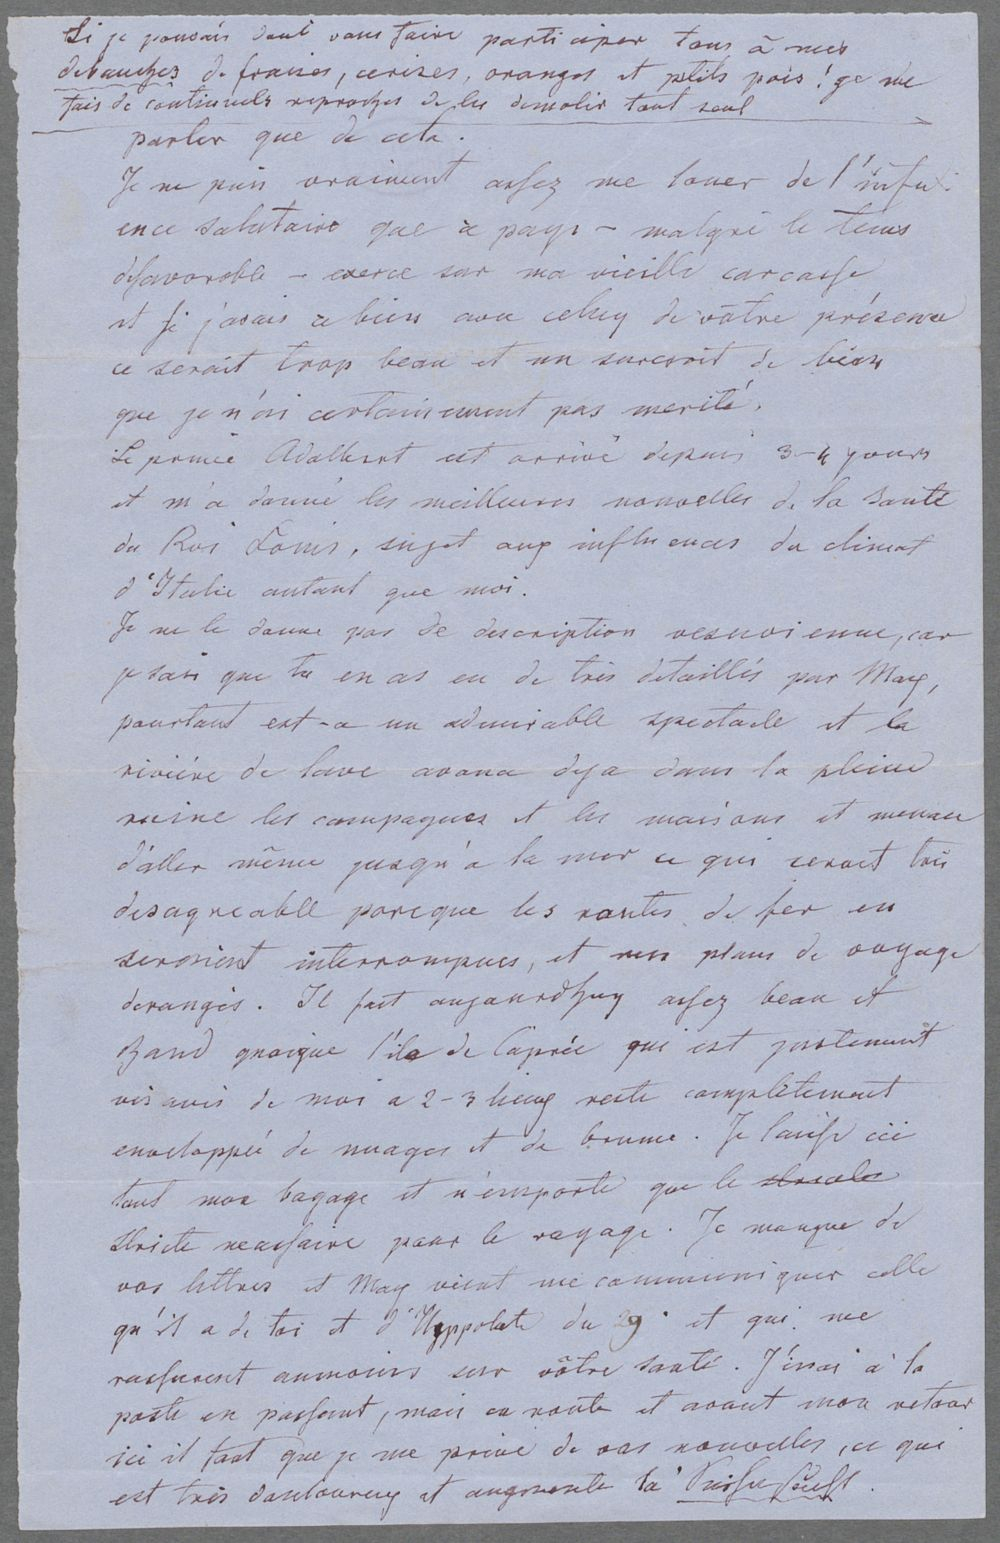 Si je pouvais dont vous faire participer tous à mes
debauches de fraises, cerises, oranges et petits pois! je me
fais de continuels reproches de les demolir tout seul
parler que de cela.
Je ne puis vraiment assez me louer de l'influ-
ence salutaire que ce pays – malgré le tems
defavorable – exerce sur ma vieille carcasse
et si j'avais ce bien avec celuy de vôtre présence
ce serait trop beau et un surcroit de bien
que je n'ai certainement pas merité.
Le prince Adalbert est arrivé depuis 3–4 jours
et m'a donné les meilleures nouvelles de la santé
du Roi Louis, sujet aux influences du climat
d'Italie autant que moi.
Je ne te donne pas de description vesuvienne, car
je sais que tu en as eu de très detaillés par Max,
pourtant est-ce un admirable spectacle et la
riviére de lave avance deja dans la pleine
ruine les campagnes et les maisons et menace
d'aller même jusqu'a la mer ce qui serait très
desagreable parceque les routes de fer en
seraient interrompues, et mes plans de voyage
derangés. Il fait aujourdhuy assez beau et
chaud quoique l'ile de Caprée qui est justement
vis avis de moi a 2–3 lieux reste complètement
enveloppée de nuages et de brume. Je laisse ici
tout mon bagage et n'emporte que le
stricte necessaire pour le voyage. Je manque de
vos lettres et Max vient me communiquer celle
qu'il a de toi et d'Hyppolite du 29. et qui me
rassurent aumoins sur vôtre santé. J'irai à la
poste en passant, mais en route et avant mon retour
ici il faut que je me prive de vos nouvelles, ce qui
est très douloureux et augmente la